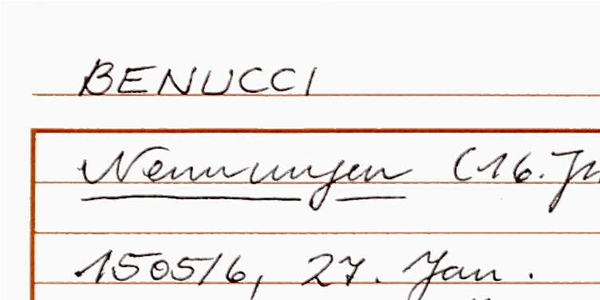 BENUCCI
Nennungen (16. J
1505/6, 27. Jan.